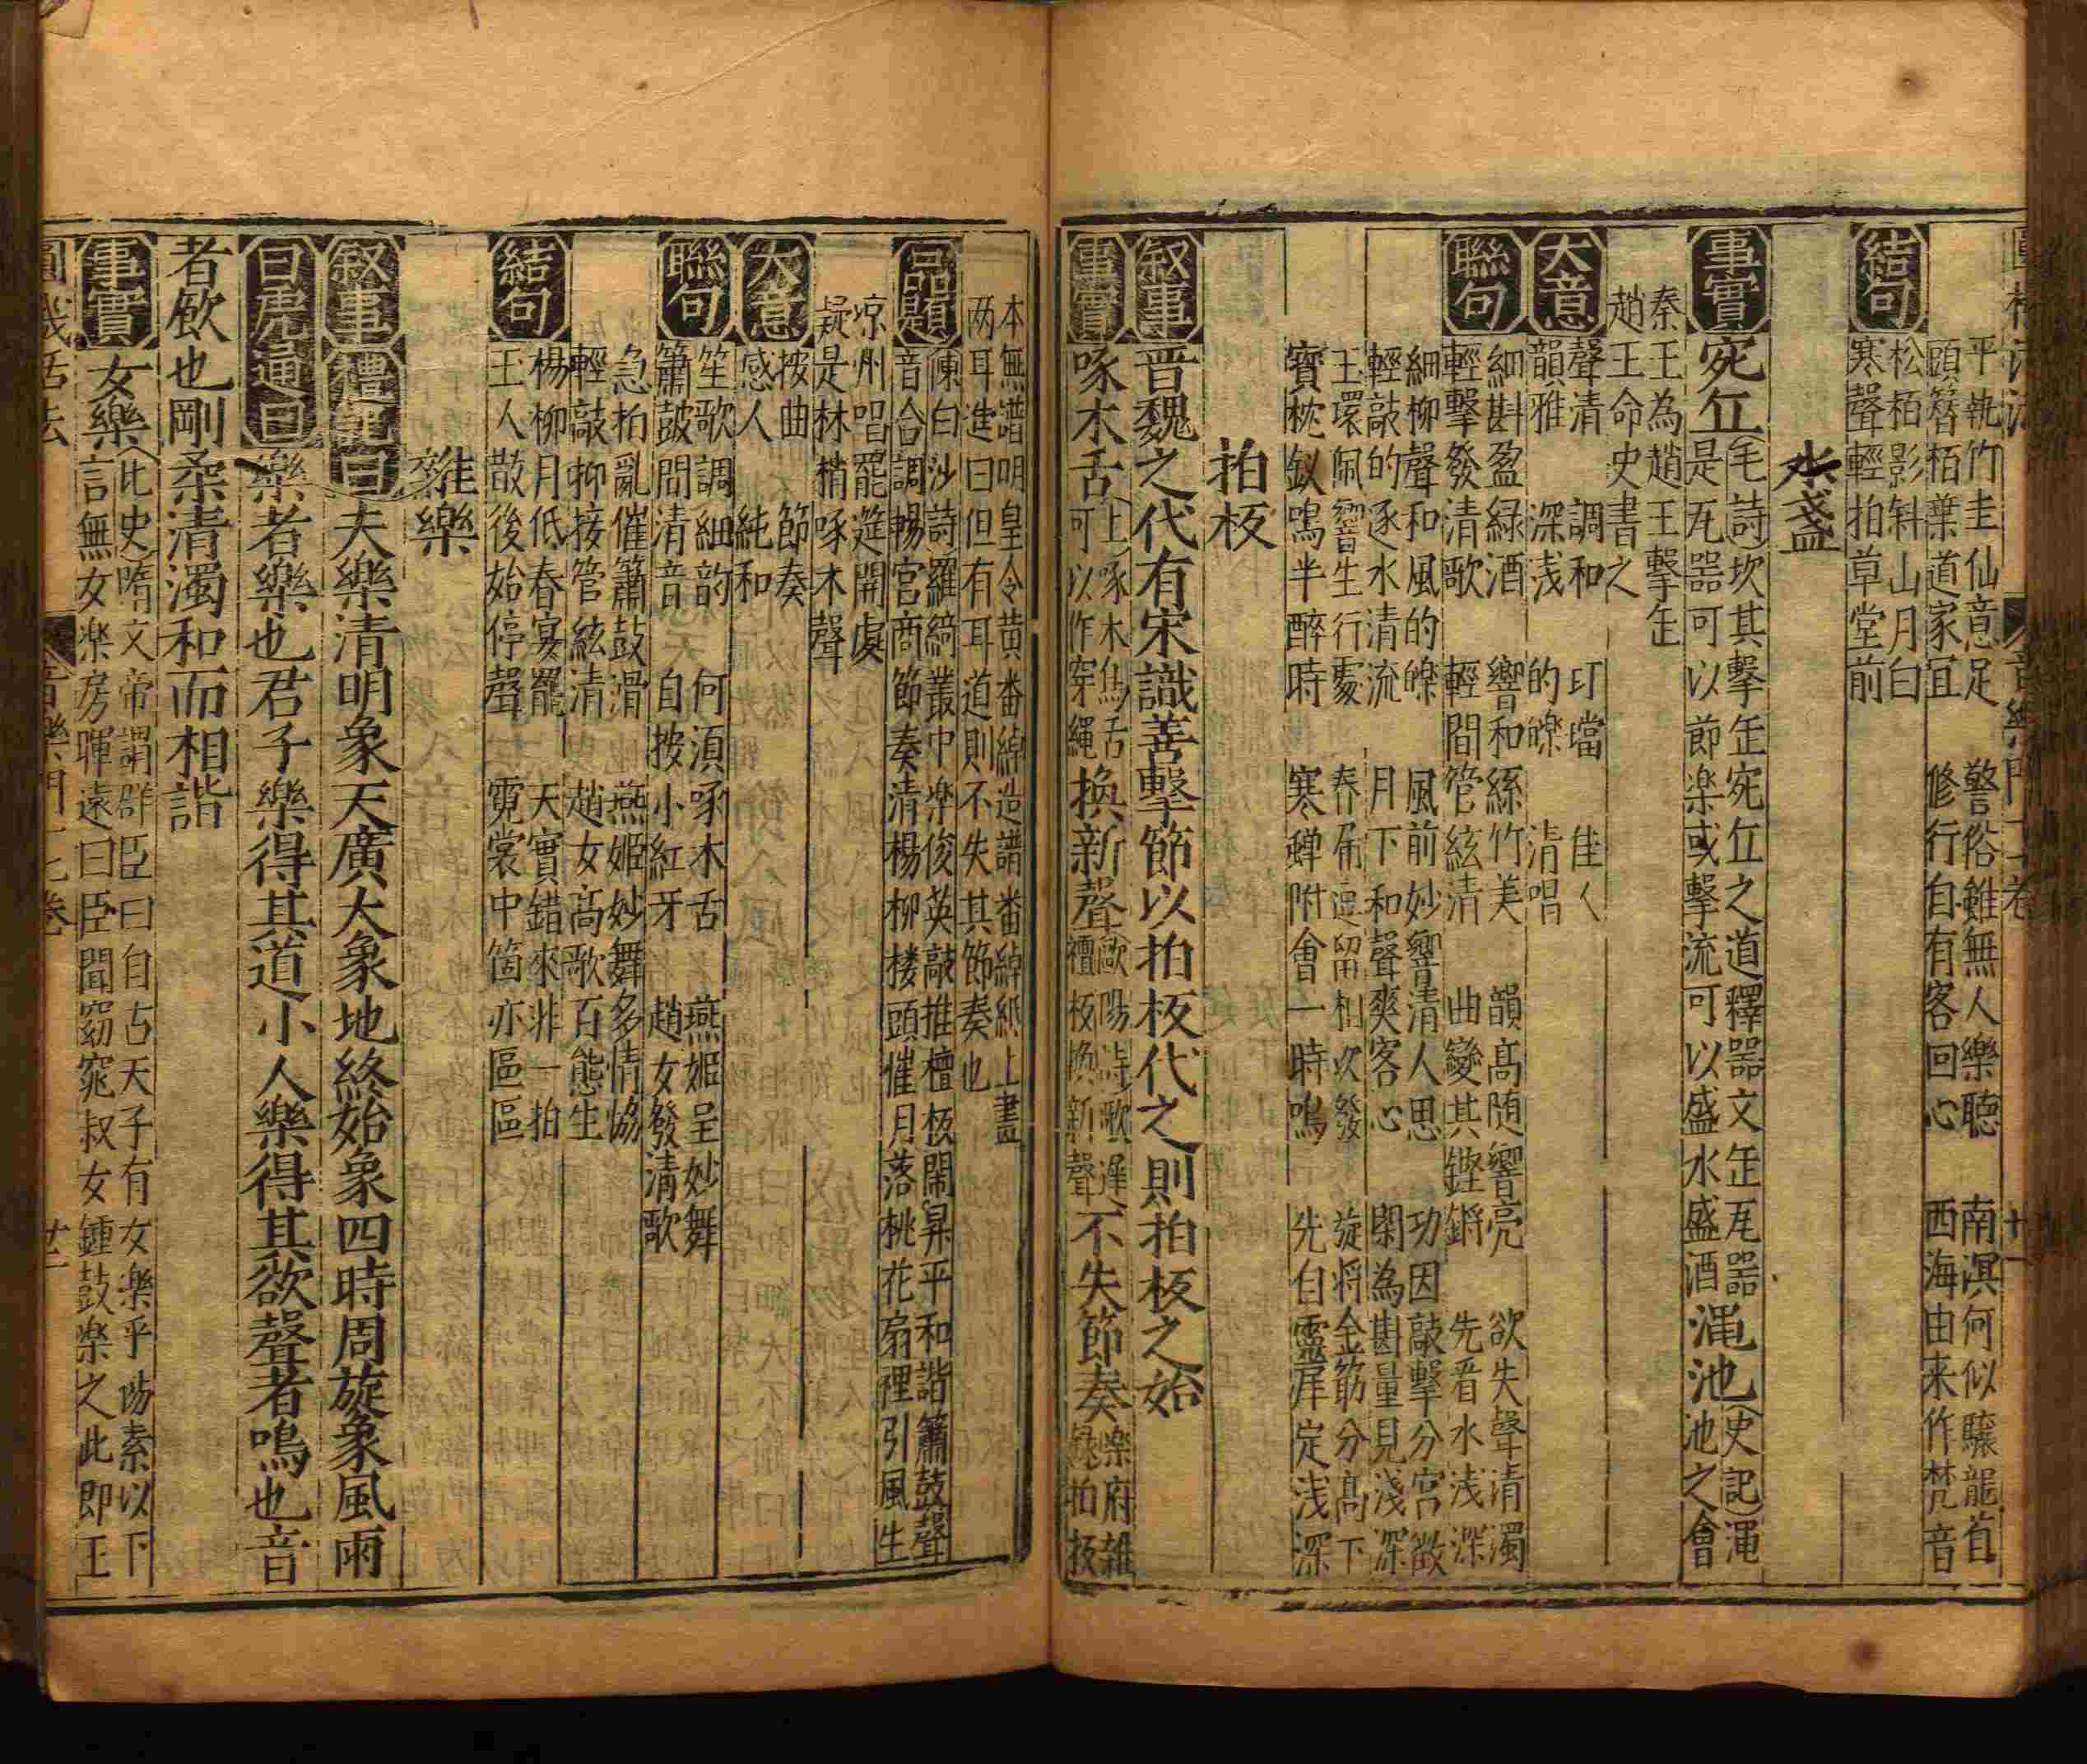 平執竹圭仙意足 警俗雖無人樂聽 南溟何似驤龍首
頤簪栢葉道家宜 修行自有客回心 西海由来作梵音
結句 松栢影斜山月白
寒聲輕拍草堂前
水盞
事實 宛丘(毛詩)坎其擊缶宛丘之道釋噐文缶瓦噐
是瓦噐可以節楽或擊流可以盛水盛酒 澠池(史記)澠
池之會
秦王為趙王擊缶
趙王命史書之
大意 聲清 調和 玎璫 佳人
韻雅 深浅 的皪 清唱
聯句 細斟盈緑酒 響和絲竹美 韻髙随響亮 欲失聲清濁
輕擊發清歌 輕間管絃清 曲變其鏗鏘 先看水浅深
細柳聲和風的皪 風前妙響清人思 功因敲擊分宫徴
輕敲的逐水清流 月下和聲爽客心 閑為斟量見淺深
玉環佩響生行處 春 逗留相次發 旋将金筯分髙下
寳枕釵鳴半醉時 寒蟬附會一時鳴 先自靈犀定浅深
拍板
叙事 晋魏之代有宋識善擊節以拍板代之則拍板之始
事實 啄木舌(上啄木鳥舌)
可以作穿繩 換新聲 歐陽詩歌遲
檀板換新聲 不失節奏 楽府雜
録拍板
本無譜明皇令黄番綽造譜番綽紙上畫
两耳進曰但有耳道則不失其節奏也
品題 陳白沙詩羅綺叢中楽俊英敲推檀板閙昇平和諧簫鼓聲
音合調暢宫商節奏清楊柳楼頭催月落桃花扇裡引風生
凉州唱罷筵開處
疑是林梢啄木聲
大意 按曲 節奏
感人 純和
聯句 笙歌調細韵 何湏啄木舌 燕姬呈妙舞
簫鼓間清音 自按小紅牙 趙女發清歌
急拍亂催簫鼓滑 燕姬妙舞多情恊
輕敲抑接管絃清 趙女髙歌百態生
結句 楊柳月低春宴罷 天寳錯來非一拍
玉人散後始停聲 霓裳中箇亦區區
雜樂
叙事 禮記曰 夫樂清明象天廣大象地終始象四時周旋象風雨
白虎通曰 樂者樂也君子樂得其道小人樂得其欲聲者鳴也音
者飲也剛柔清濁和而相諧
事實 女樂(北史)隋文帝謂群臣曰自古天子有女樂乎 素以下
言無女楽房暉遠曰臣聞窈窕叔女鍾鼓楽之此即王
圓機活法 音樂門十七卷